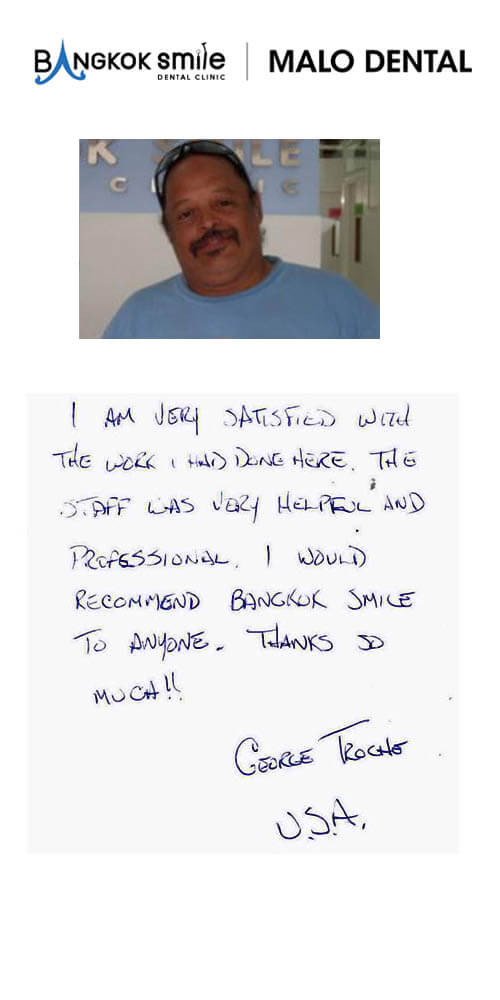 BANGKOK smile
DENTAL CLINIC
MALO DENTAL
K SMILE
CLINIC
I AM VERY SATISFIED WITH
THE WORK I HAD DONE HERE. THE
STAFF WAS VERY HELPFUL AND
PROFESSIONAL. I WOULD
RECOMMEND BANGKOK SMILE
TO ANYONE. THANKS SO
MUCH!!
GEORGE TROCHE
U.S.A.